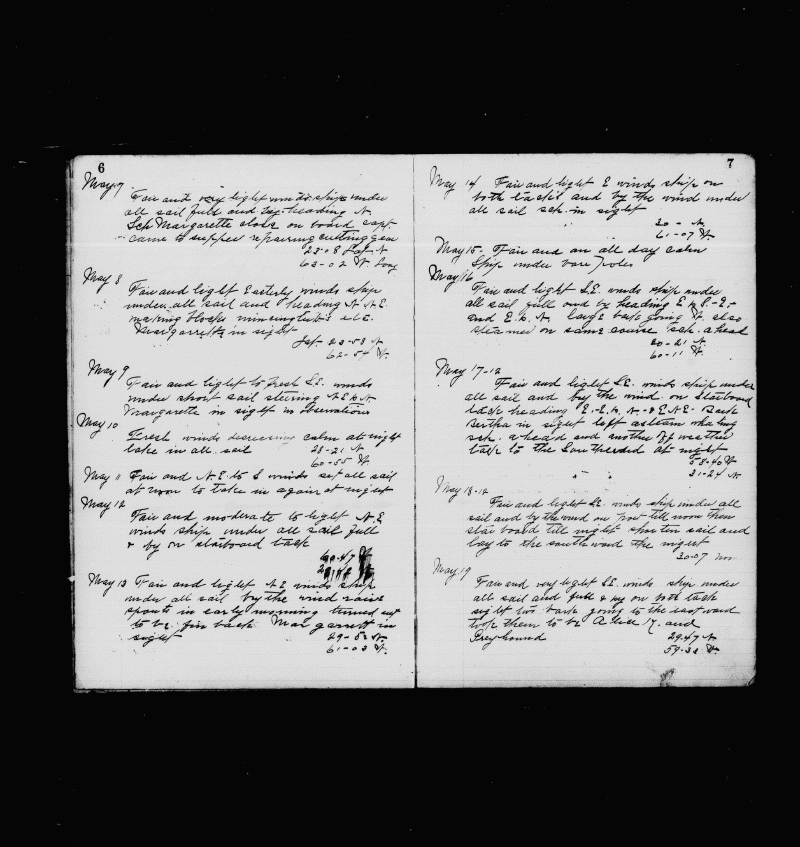 6
May 7
Fair and very light winds ship under
all sail full and by heading N.
Sch Margarette close on board capt.
came to supper repairing cutting gear
23-08 Lat N
63-02 W. Long
May 8
Fair and light Easterly winds ship
under all sail and heading N. N.E.
making blocks mincing tubs etc.
Margarrette in sight
Lat 23-53 N
62-54 W.
May 9
Fair and light to fresh S.E. winds
under short sail steering N.E. by N.
Margarette in sight no observations
May 10
Fresh winds decreasing calm at night
take in all sail 28-21 N
60-55 W.
May 11 Fair and N.E. to S winds set all sail
at noon to take in again at night
May 12
Fair and moderate to light N.E.
winds ship under all sail full
& by on starboard tack
60.47 W
May 13 Fair and light N.E. winds ship
under all sail by the wind raise
spouts in early morning turned out
to be fin back Margarrett in
sight 29-52 N.
61-03 W.
7
May 14 Fair and light E winds ship on
both tacks and by the wind under
all sail sch. in sight
30 - N
61-07 W.
May 15. Fair and an all day calm
Ship under bare poles
May 16
Fair and light S.E. winds ship under
all sail full and by heading
and E. by N. large bark going W. also
steamer on same course sch. ahead
30-21 N.
60-11 W.
May 17-12
Fair and light S.E. winds ship under
all sail and by the wind on Starboard
tack heading E.-E. by N. & E.N.E. Bark
Bertha in sight left astern whaling
sch. ahead and another off weather
tack to the Southward at night
58-46 W
31-24 N
May 18-12
Fair and light S.E. winds ship under all
sail and by the wind on Port till noon then
starboard till night shorten sail and
lay to the southward the night
30-07
May 19
Fair and very light S.E. winds ship under
all sail and full & by on port tack
sight two barks going to the eastward
took them to be Alice K. and
Greyhound 29.47 N
59-32 W.